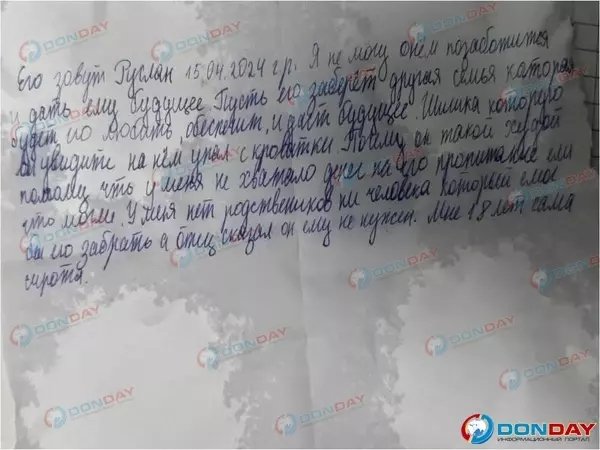 Его зовут Руслан 15.04.2024 г.р. Я не могу о нём позаботится
и дать ему будущее. Пусть его заберёт другая семья которая
будет его любить обеспечит, и даст будущее. Шишка которую
вы увидите на нём упал с кроватки. Почему он такой худой
потому, что у меня не хватало денег на его пропитание ели
что могли. У меня нет родствеников ни человека который смог
бы его забрать а отец сказал он ему не нужен. Мне 18 лет сама
сирота.
DONDAY
DONDAY
DONDAY
DONDAY
DONDAY
DONDAY
DONDAY
DONDAY
DONDAY
ИНФОРМАЦИОННЫЙ ПОРТАЛ